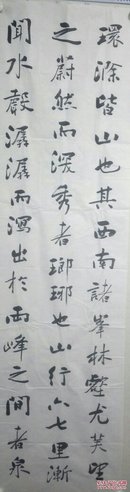 環滁皆山也其西南諸峯林壑尤美望
之蔚然而深秀者瑯琊也山行六七里漸
聞水聲潺潺而瀉出於兩峰之間者泉